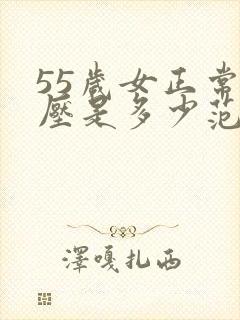 55歲女正常
壓是多少范
澤嘎扎西